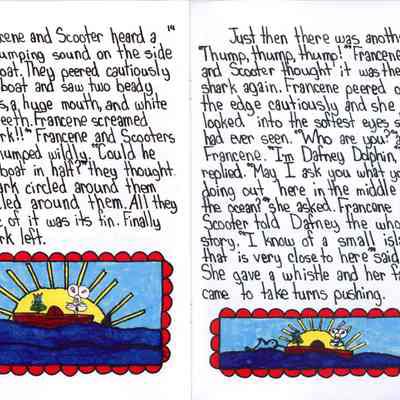 14
cene and Scooter heard a
umping sound on the side
oat. They peered cautiously
boat and saw two beady
s, a huge mouth, and white
eeth. Francene screamed
rk!!" Francene and Scooters
umped wildly. "Could he
oat in half?" they thought.
ark circled around them
led around them. All they
e of it was its fin. Finally
rk left.
Just then there was anoth
"Thump, thump, thump!" Francene
and Scooter thought it was the
shark again. Francene peered o
the edge cautiously and she
looked into the softest eyes s
had ever seen. "Who are you?" a
Francene. "I'm Dafney Dolphin,"
replied. "May I ask you what yo
doing out here in the middle
the ocean?" she asked. Francene
Scooter told Dafney the who
story. "I know of a small isla
that is very close to here" said
She gave a whistle and her fa
came to take turns pushing.